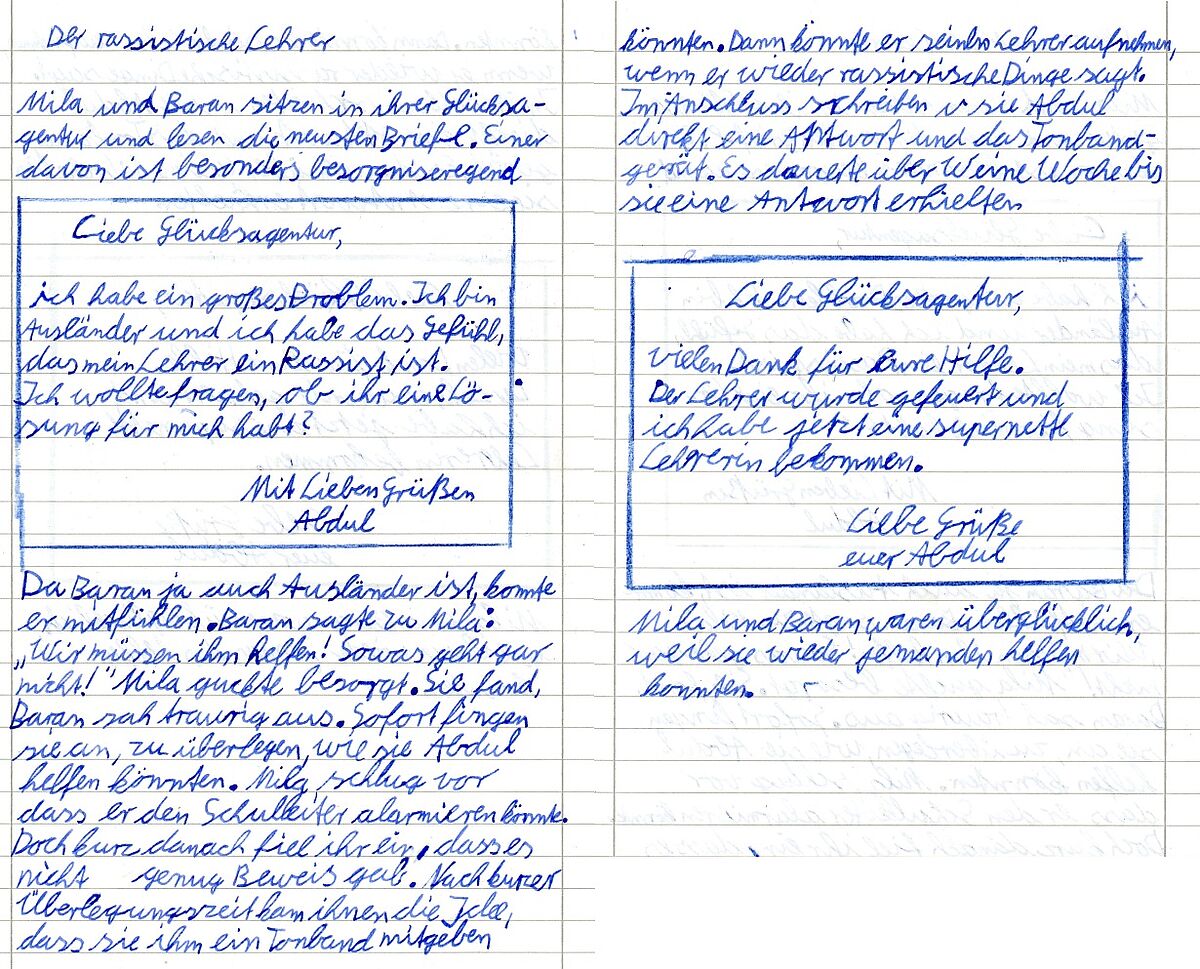 Der rassistische Lehrer
Mila und Baran sitzen in ihrer Glücksa-
gentur und lesen die neusten Briefe. Einer
davon ist besonders besorgniseregend
Liebe Glücksagentur,
ich habe ein großes Problem. Ich bin
Ausländer und ich habe das Gefühl,
das mein Lehrer ein Rassist ist.
Ich wollte fragen, ob ihr eine Lö-
sung für mich habt?
Mit Lieben Grüßen
Abdul
Da Baran ja auch Ausländer ist, konnte
er mitfühlen. Baran sagte zu Mila:
„Wir müssen ihm helfen! Sowas geht gar
nicht!" Mila guckte besorgt. Sie fand,
Baran sah traurig aus. Sofort fingen
sie an, zu überlegen, wie sie Abdul
helfen könnten. Mila schlug vor
dass er den Schulleiter alarmieren könnte.
Doch kurz danach fiel ihr ein, dass es
nicht genug Beweis gab. Nach kurzer
Überlegungszeit kam ihnen die Idee,
dass sie ihm ein Tonband mitgeben
könnten. Dann könnte er seinen Lehrer aufnehmen,
wenn er wieder rassistische Dinge sagt.
Im Anschluss schreiben sie Abdul
direkt eine Antwort und das Tonband-
gerät. Es dauerte über eine Woche bis
sie eine Antwort erhielten
Liebe Glücksagentur,
vielen Dank für eure Hilfe.
Der Lehrer wurde gefeuert und
ich habe jetzt eine supernette
Lehrerin bekommen.
Liebe Grüße
euer Abdul
Mila und Baran waren überglücklich,
weil sie wieder jemanden helfen
konnten.